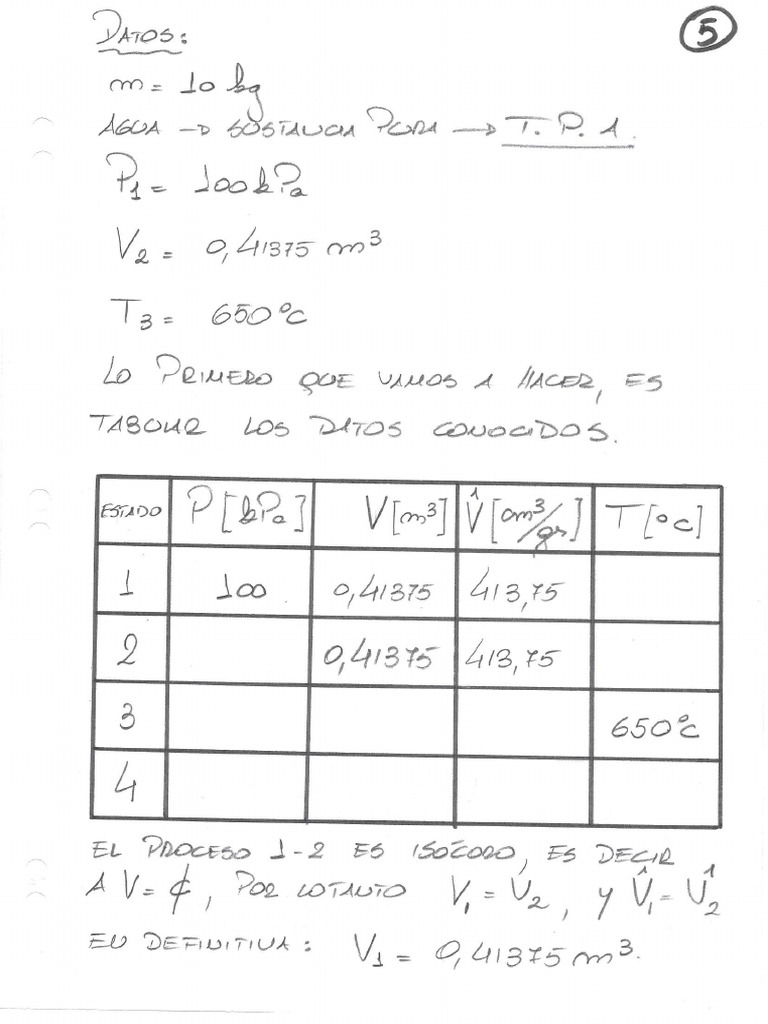 5
DATOS:
m = 10 kg
AGUA → SUSTANCIA PURA → T.P.1.
P1 = 100 kPa
V2 = 0,41375 m³
T3 = 650°C
LO PRIMERO QUE VAMOS A HACER, ES
TABULAR LOS DATOS CONOCIDOS.
ESTADO P[kPa] V[m³] V̂[cm³/gr] T[°C]
1 100 0,41375 413,75
2 0,41375 413,75
3 650°C
4
EL PROCESO 1-2 ES ISÓCORO, ES DECIR
A V = ₵, POR LO TANTO V1 = V2, Y V̂1 = V̂2
EN DEFINITIVA: V1 = 0,41375 m³.